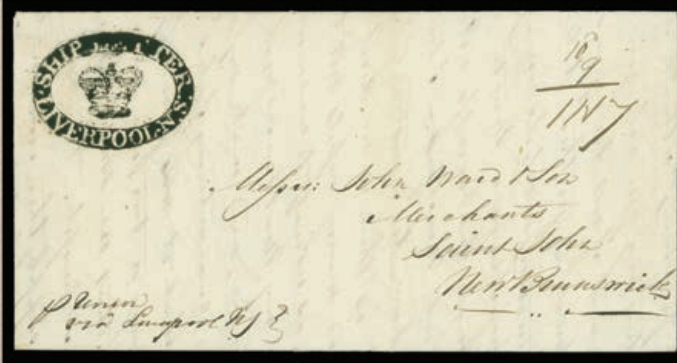 SHIP LETTER
LIVERPOOL.N.S.
10
9
1N7
Messrs: John Ward & Son
Merchants
Saint John
New Brunswick
via Liverpool NS